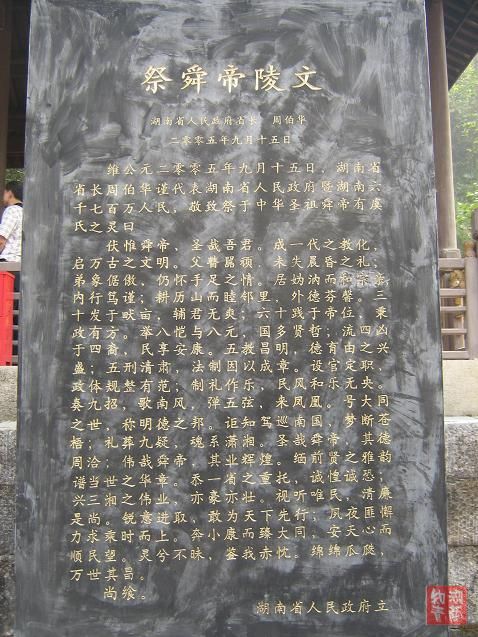 祭舜帝陵文
湖南省人民政府省长 周伯华
二零零五年九月十五日
维公元二零零五年九月十五日，湖南省
省长周伯华谨代表湖南省人民政府暨湖南六
千七百万人民，敬致祭于中华圣祖舜帝有虞
氏之灵曰
伏惟舜帝，圣哉吾君。成一代之教化，
启万古之文明。父瞽嚚顽，未失晨昏之礼；
弟象倨傲，仍怀手足之情。居妫汭而和宗亲
内行笃谨；耕历山而睦邻里，外德芬馨。三
十发于畎亩，辅君无爽；六十践于帝位，秉
政有方。举八恺与八元，国多贤哲；流四凶
于四裔，民享安康。五教昌明，德育由之兴
盛；五刑清肃，法制因以成章。设官定职，
政体规整有范；制礼作乐，民风和乐无央。
奏九招，歌南风，弹五弦，来凤凰。号大同
之世，称明德之邦。讵知驾巡南国，梦断苍
梧；礼葬九疑，魂系潇湘。圣哉舜帝，其德
周洽；伟哉舜帝，其业辉煌。缅前贤之雅韵
谱当世之华章。忝一省之重托，诚惶诚恐；
兴三湘之伟业，亦豪亦壮。视听唯民，清廉
是尚。锐意进取，敢为天下先行；夙夜匪懈
力求乘时而上。奔小康而臻大同，安天心而
顺民望。灵兮不昧，鉴我赤忱。绵绵瓜瓞，
万世其昌。
尚飨。
湖南省人民政府立